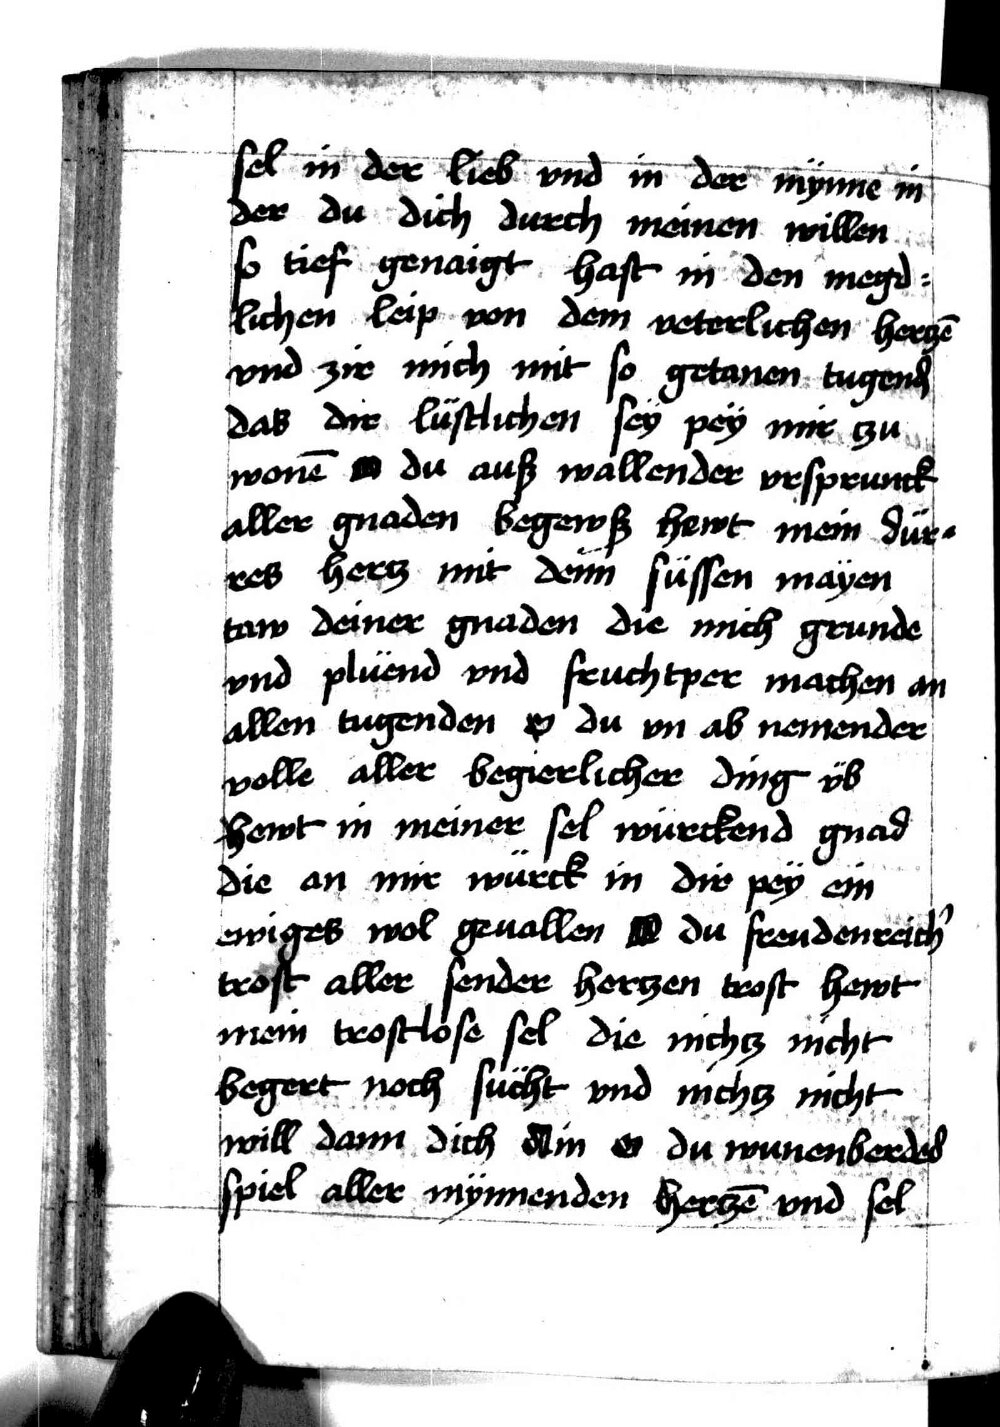 sel in der lieb vnd in der mÿnne in
der du dich durch meinen willen
so tief genaigt hast in den megd:
lichen leip von dem veterlichen hertzē
vnd zir mich mit so getanen tugend
das dir lüstlichen seÿ peÿ mir tzu
wonē o du auß wallender vrsprunck
aller gnaden begewß hewt mein dür-
res hertz mit dein süssen maÿen
taw deiner gnaden die mich grunde
vnd plüend vnd fruchtper machen an
allen tugenden o du vn ab nemender
volle aller begierlicher ding üb
hewt in meiner sel würckend gnad
die an mir würck in dir peÿ ein
ewiges wol geuallen O du freudenreich'
trost aller sender hertzen trost hewt
mein trostlose sel die nichtz nicht
begert noch sücht vnd nichtz nicht
will dann dich o du wunenberded
spiel aller mÿnnenden hertzē vnd sel